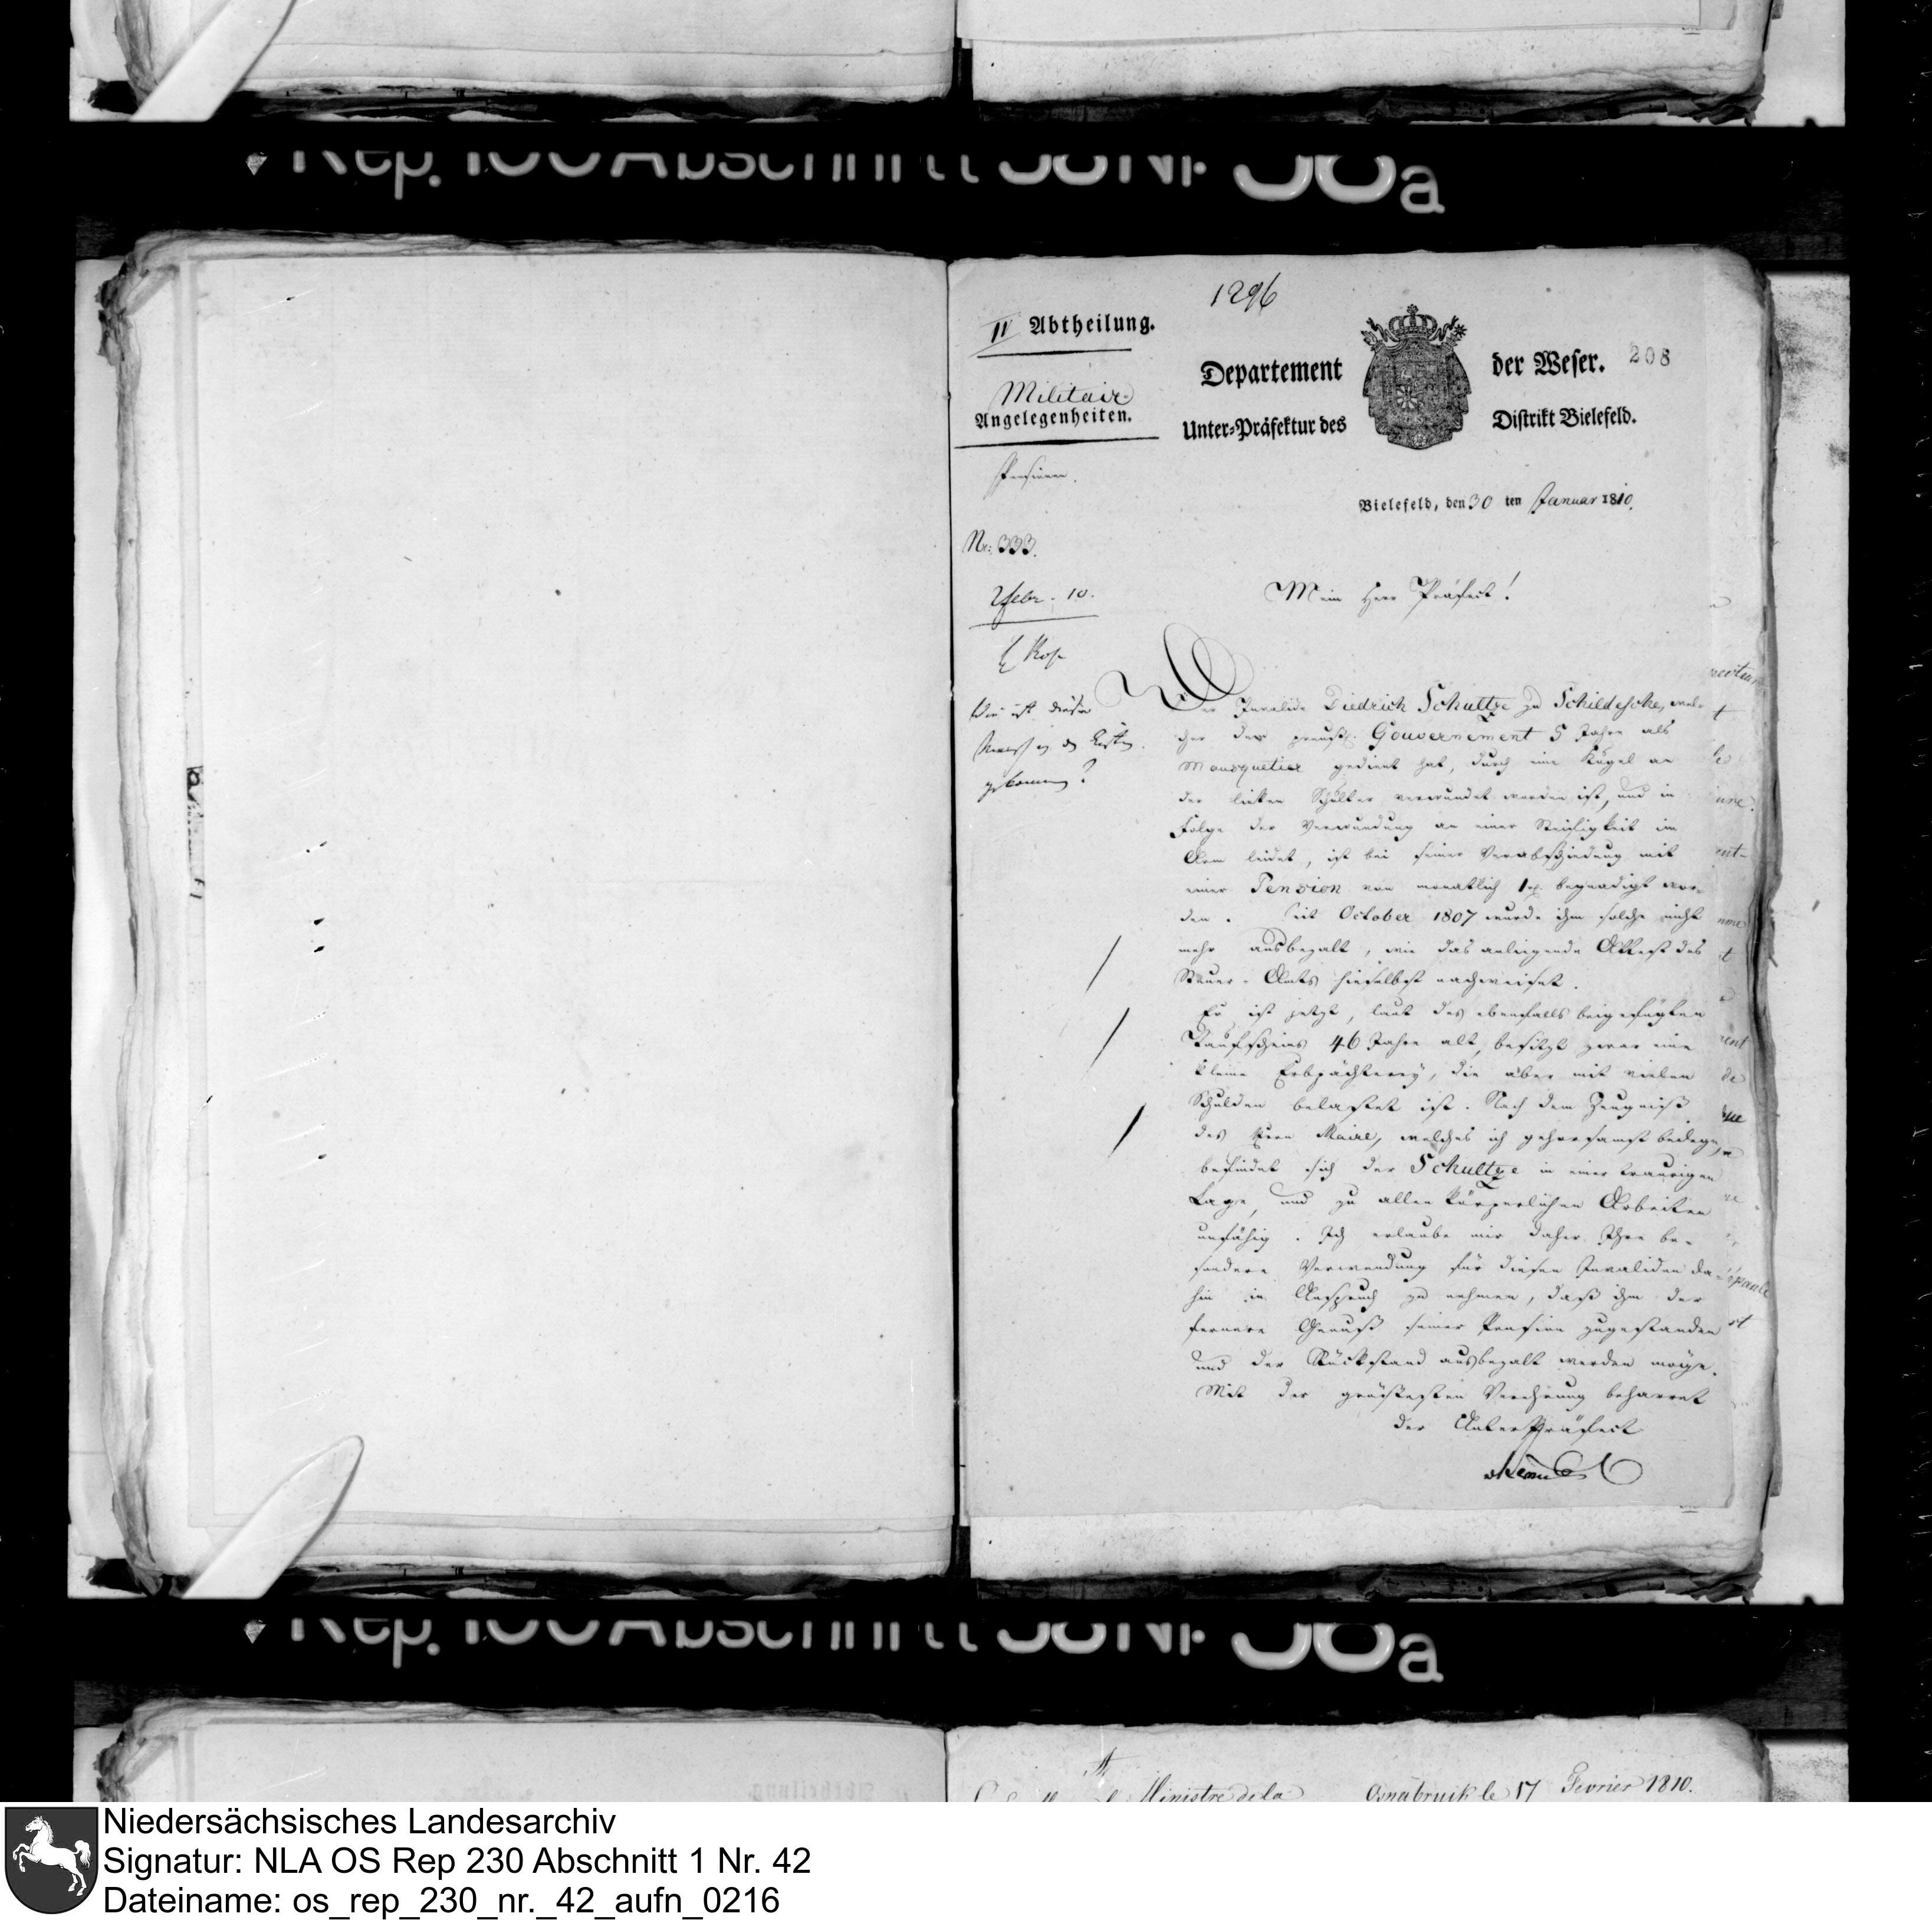 Rep. 100 Abschnitt 58 Nr. 38a
1296
IV Abtheilung.
Departement der Weser. 208
Militair
Angelegenheiten.
Unter-Präfektur des Distrikt Bielefeld.
Pensionen.
Bielefeld, den 30 ten Januar 1810.
Nr: 333.
Mein Herr Präfect!
Febr. 10.
Der Invalide Diedrich Schultze zu Schildesche, wel-
cher dem preuß. Gouvernement 5 Jahre als
Mousquetier gedient hat, durch eine Kugel an
der linken Schulter verwundet worden ist, und in
Folge der Verwundung an einer Steifigkeit im
Arm leidet, ist bei seiner Verabschiedung mit
einer Pension von monatlich 1 begnadigt wor-
den. Seit October 1807 wurde ihm solche nicht
mehr ausbezalt, wie das anliegende Attest des
Steuer-Amts hieselbst nachweiset.
Er ist jetzt, laut des ebenfalls beigefügten
Taufscheins 46 Jahre alt, besitzt zwar eine
kleine Erbpächterey, die aber mit vielen
Schulden belastet ist. Nach dem Zeugniß
des Herrn Maire, welches ich gehorsamst beilege,
befindet sich der Schultze in einer traurigen
Lage, und zu allen körperlichen Arbeiten
unfähig. Ich erlaube mir daher Ihre be-
sondere Verwendung für diesen Invaliden da-
hin in Anspruch zu nehmen, daß ihm der
fernere Genuß seiner Pension zugestanden
und der Rückstand ausbezalt werden möge.
Mit der größesten Verehrung beharret
der UnterPräfect
wie ist dieser
gekommen?
Rep. 100 Abschnitt 58 Nr. 38a
Ministre de la
Osnabruck le 17 Fevrier 1810.
Niedersächsisches Landesarchiv
Signatur: NLA OS Rep 230 Abschnitt 1 Nr. 42
Dateiname: os_rep_230_nr._42_aufn_0216